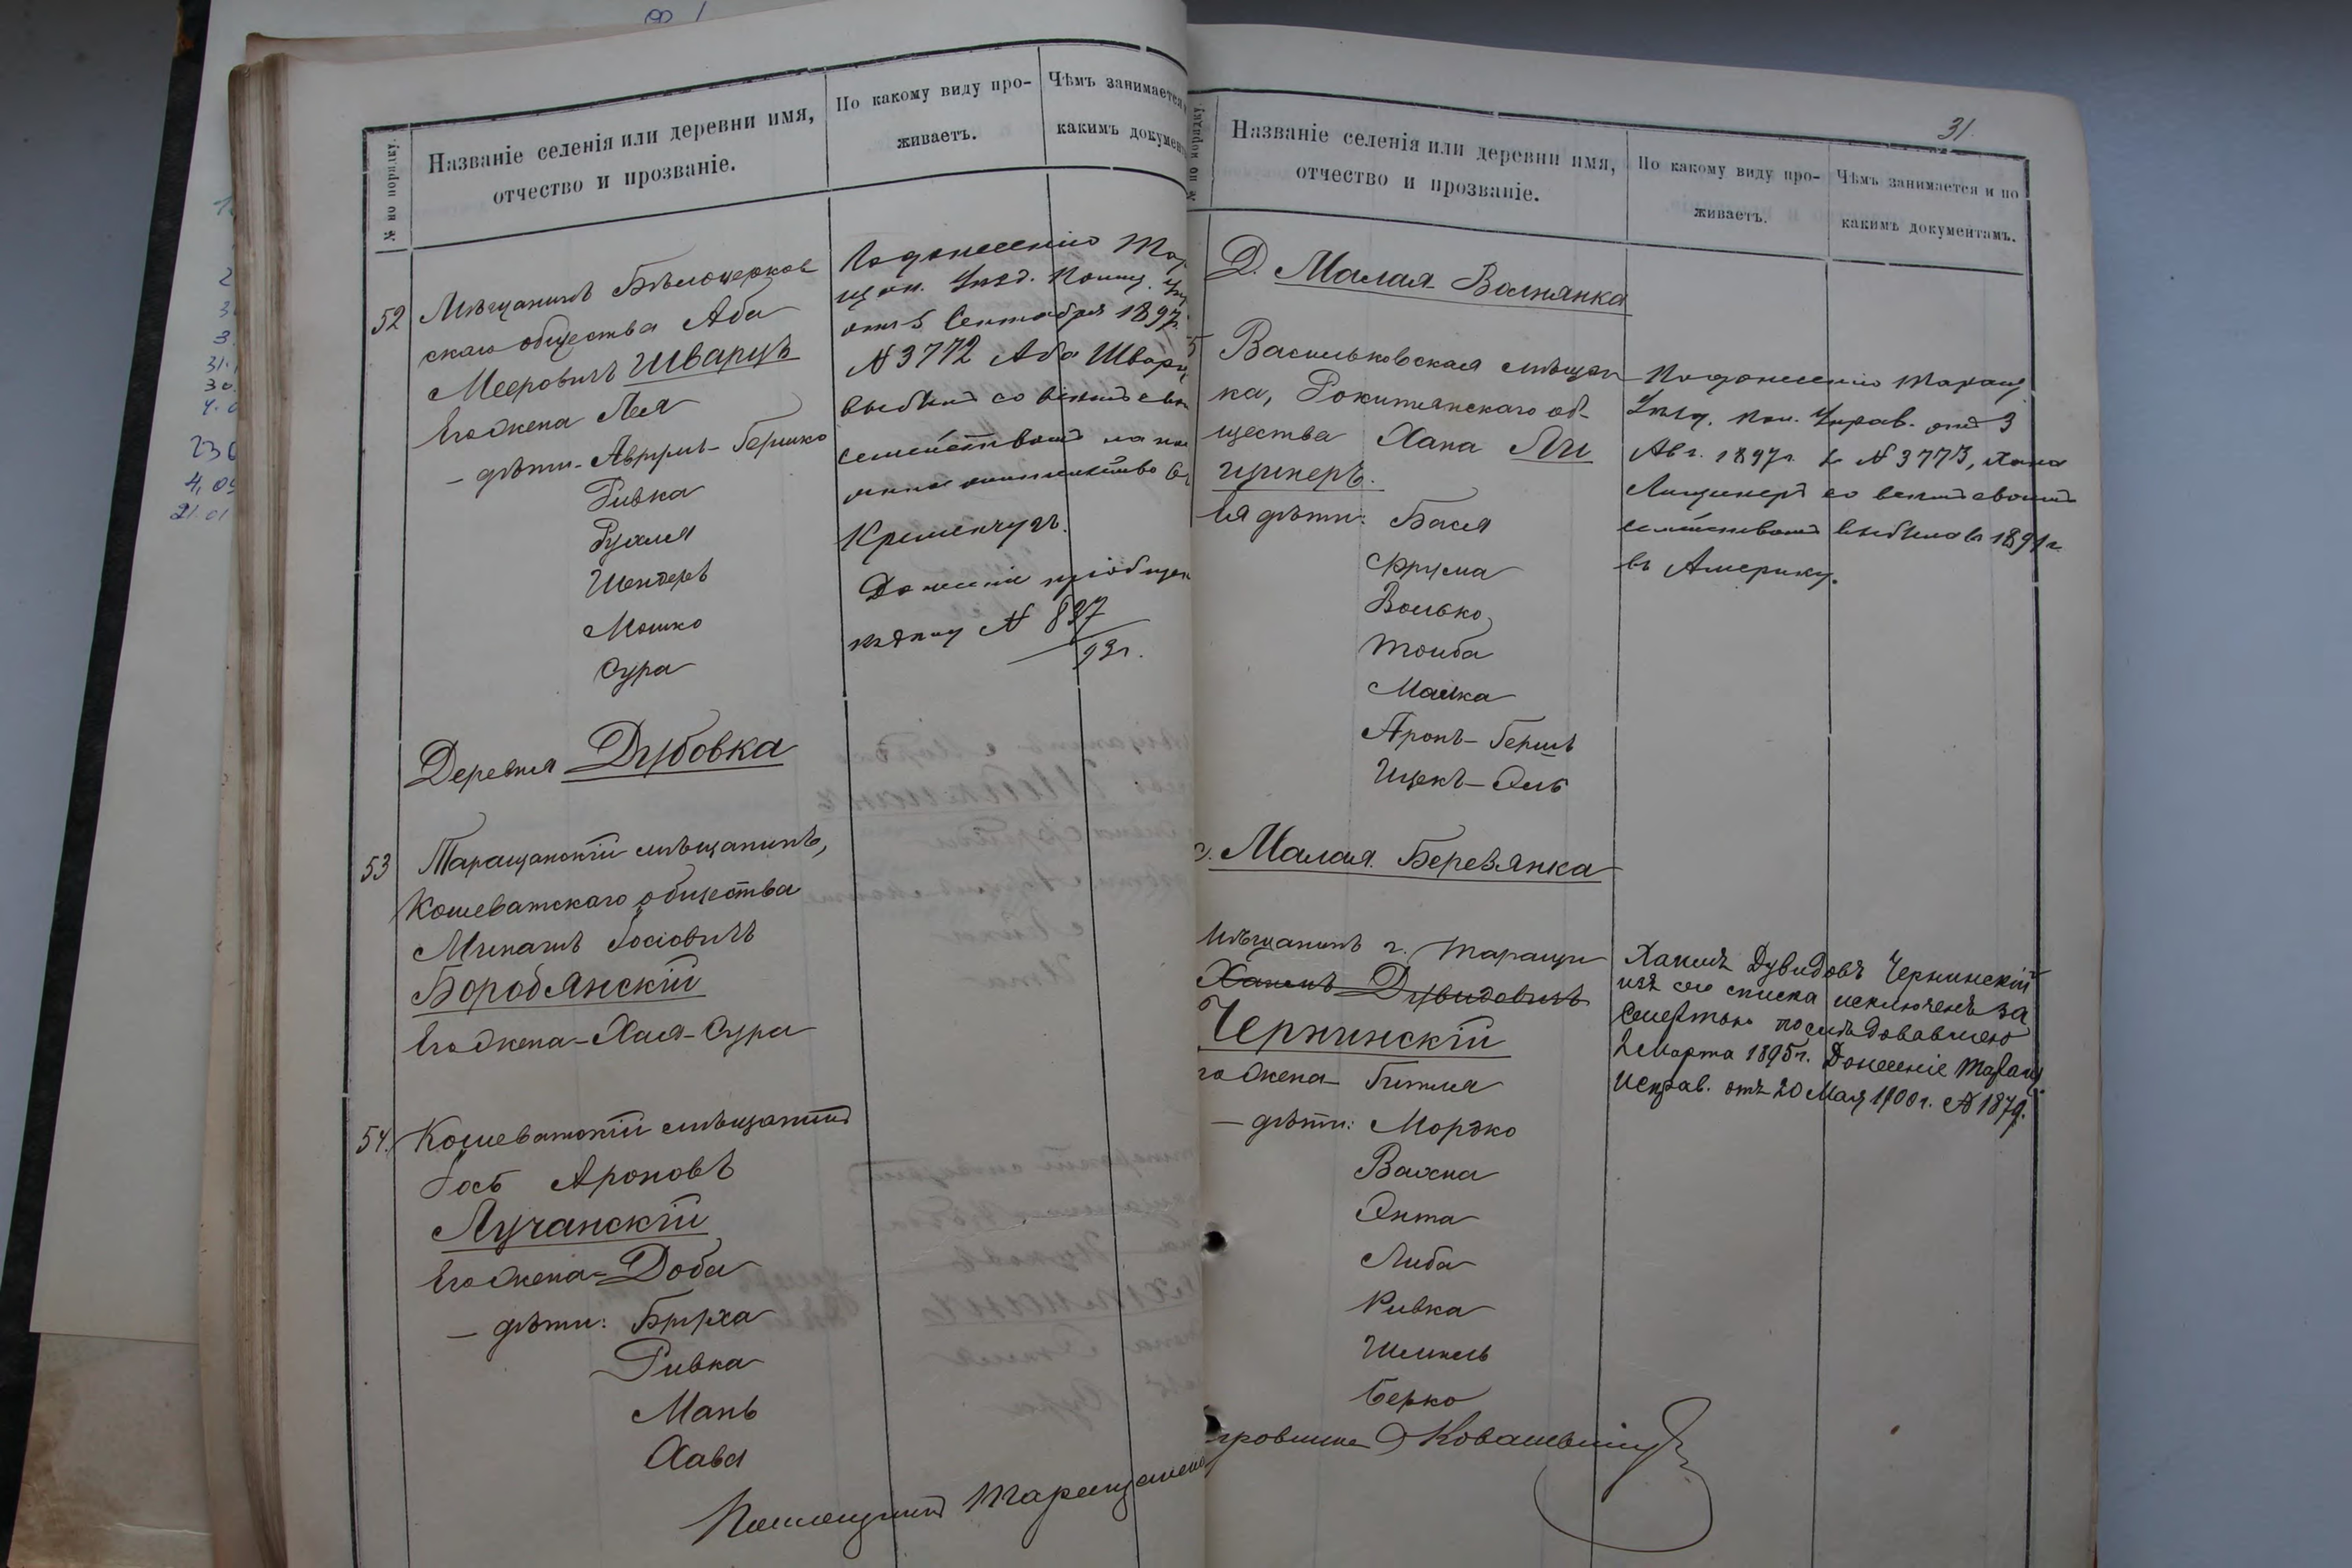 № по порядку.
Названіе селенія или деревни имя,
отчество и прозваніе.
По какому виду про-
живаетъ.
Чѣмъ занимается
какимъ докумен
52
Мѣщанинъ Бѣлоцерков
скаго общества Аба
Мееровичъ Шварцъ
Его жена Лея
— дѣти - Аврумъ - Гершко
Ривка
Рухля
Шендеръ
Мошко
Сура
По донесенію Тар
щан. Уѣзд. Полиц. Упр
отъ 5 Сентября 1897г.
№ 3772 Аба Шварц
выбылъ со всѣмъ сво
семействомъ на
жительство въ
Кременчугъ.
Донесеніе пріобщен
къ дѣлу № 837
93г.
Деревня Дубовка
53
Таращанскій мѣщанинъ,
Кошеватскаго общества
Мошко Іосіовичъ
Бородянскій
Его жена - Хая - Сура
54.
Кошеватскій мѣщанинъ
Іось Ароновъ
Лучанскій
Его жена - Доба
— дѣти: Бруха
Ривка
Мань
Хава
Помощникъ Таращанск
31.
№ по порядку.
Названіе селенія или деревни имя,
отчество и прозваніе.
По какому виду про-
живаетъ.
Чѣмъ занимается и по
какимъ документамъ.
Д. Малая Вольнянка
5
Васильковская мѣщан
ка, Рокитянскаго об-
щества Хана Ли
щинеръ.
Ея дѣти: Бася
Фрума
Волько
Тойба
Малка
Аронъ - Гершъ
Ицекъ - Эль
По донесенію Таращ.
Уѣзд. Пол. Управ. отъ 3
Авг. 1897г. за № 3773, Хана
Лищинеръ со всѣмъ своимъ
семействомъ выбыла въ 1891г.
въ Америку.
с. Малая Березянка
Мѣщанинъ г. Таращи
Хаимъ Дувидовичъ
Чернинскій
го жена - Гитля
— дѣти: Мордко
Вахна
Энта
Либа
Ривка
Шмиель
Берко
Хаимъ Дувидовъ Чернинскій
изъ сего списка исключенъ за
смертью послѣдовавшею
2 Марта 1895г. Донесеніе Таращ.
Исправ. отъ 20 Мая 1900г. № 1879.
Ковалевскій